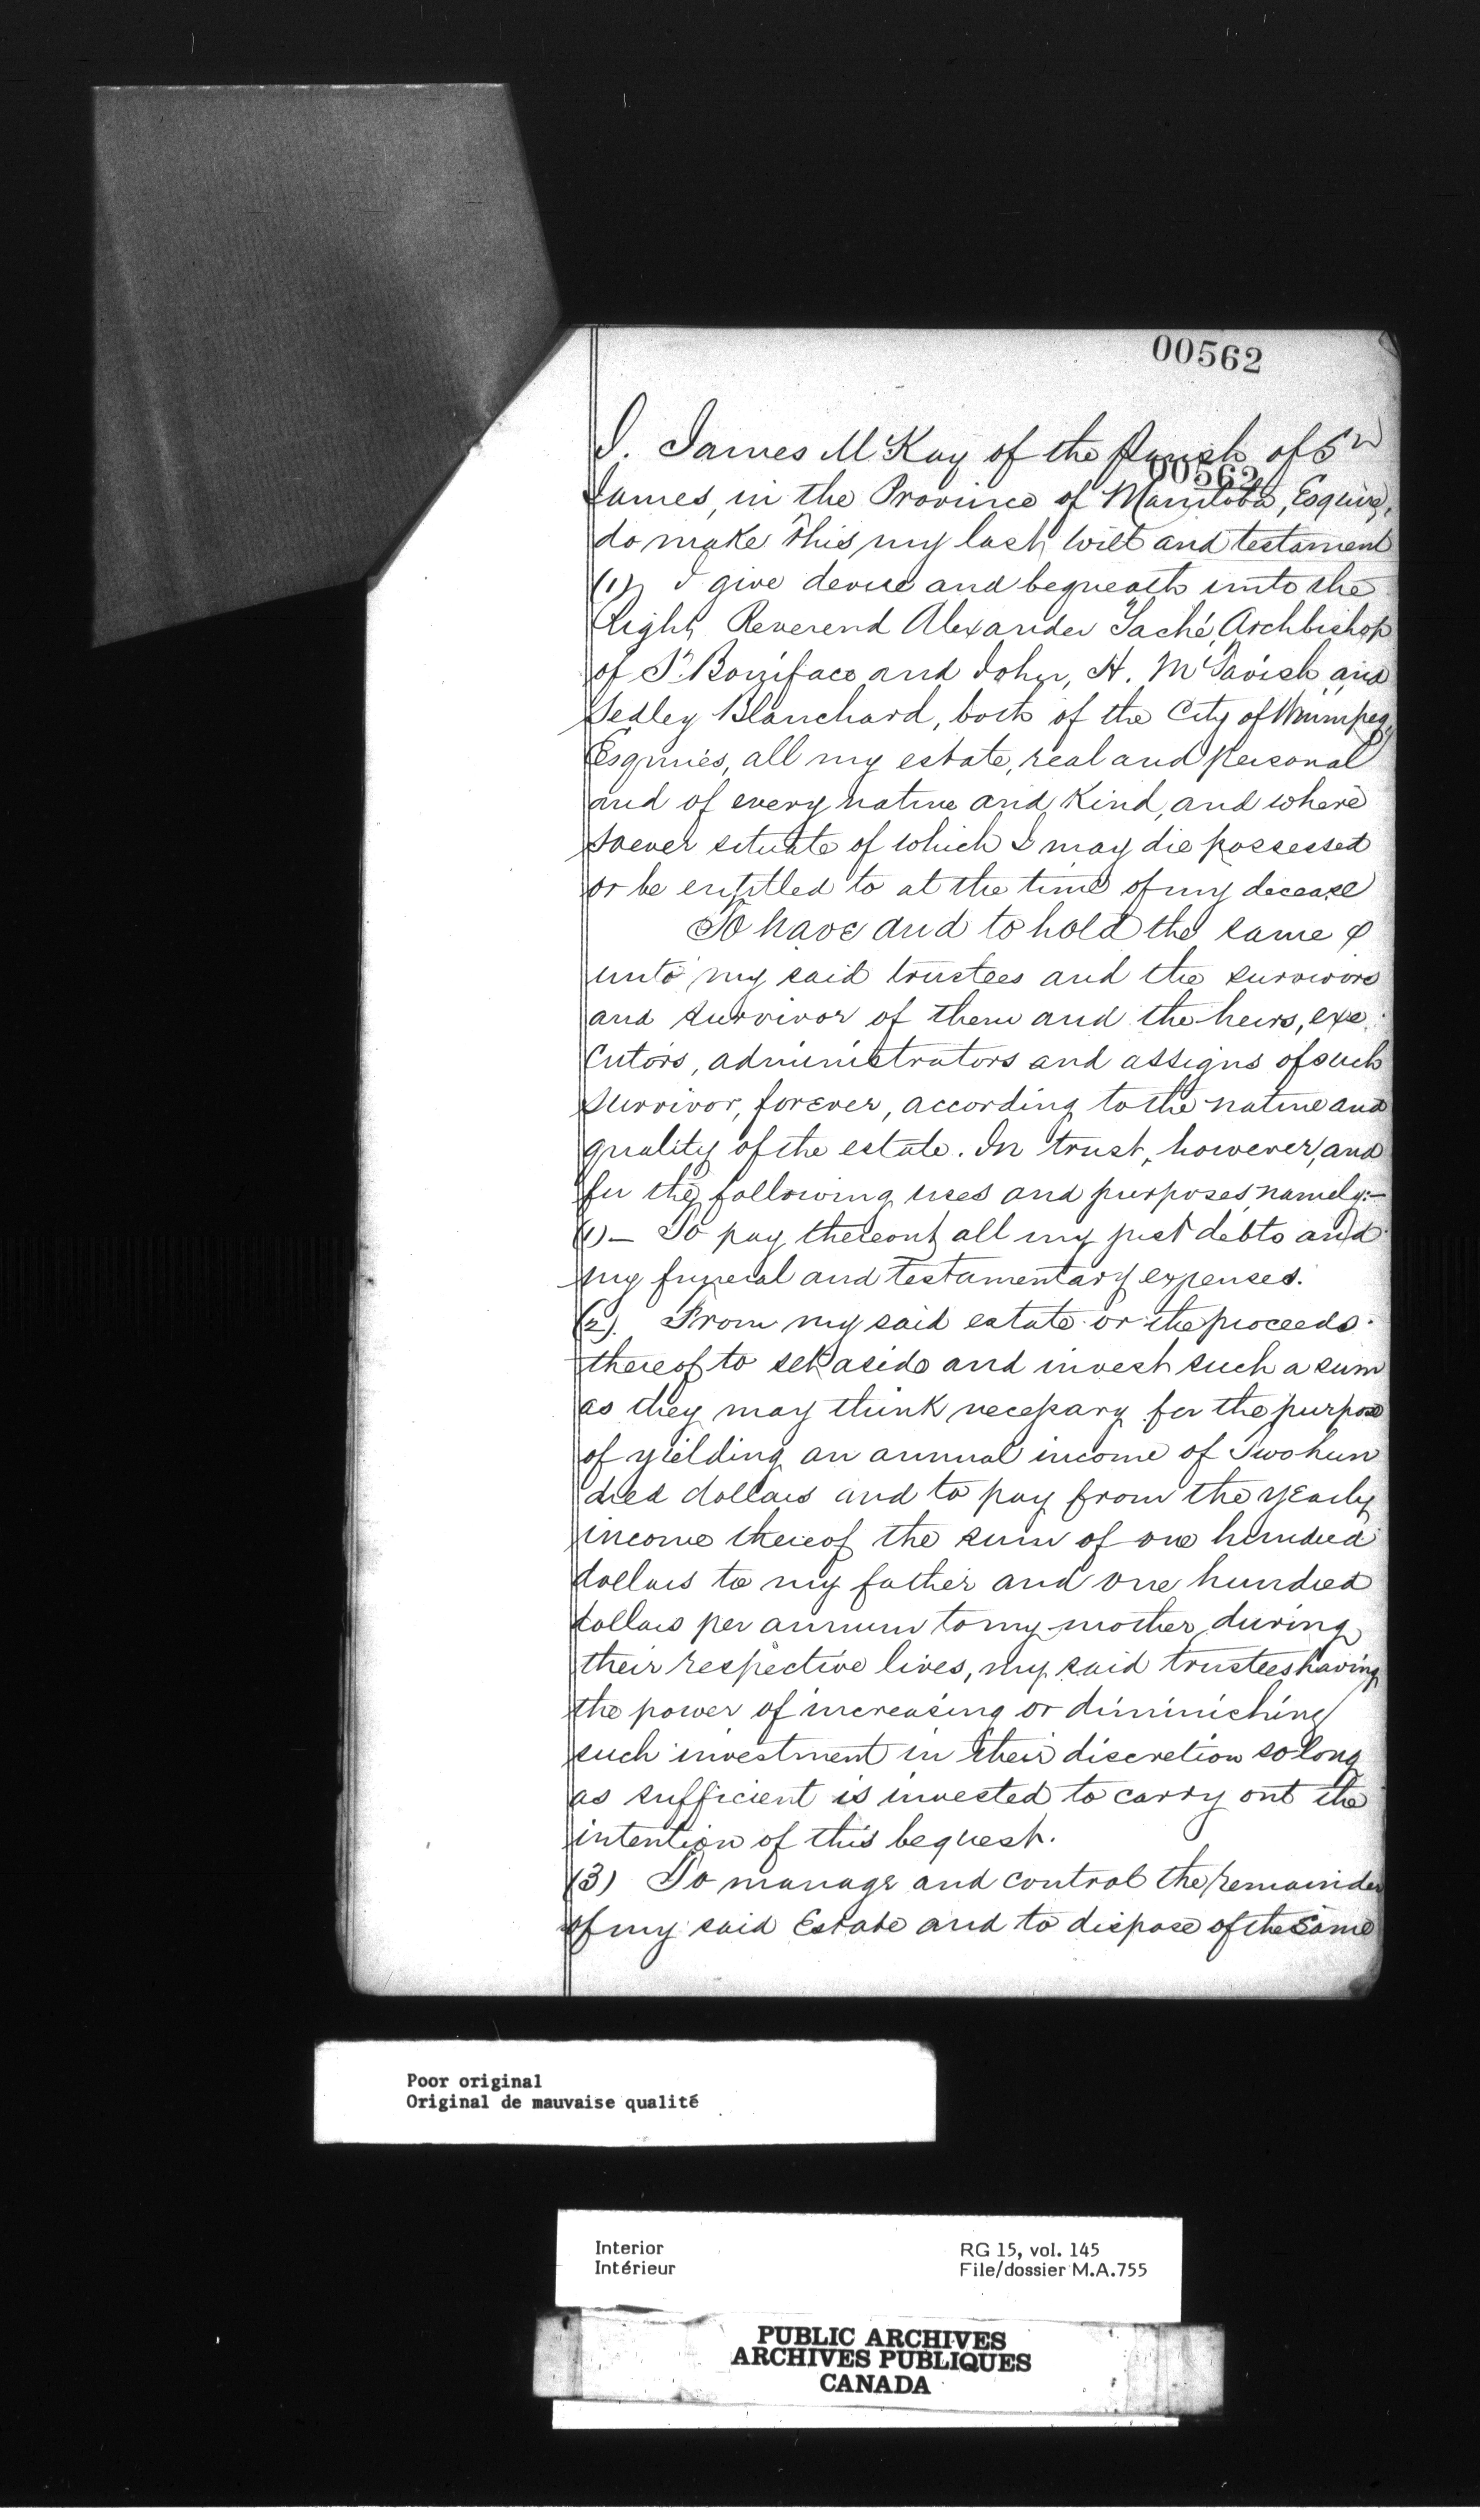 00562
I. James McKay of the Parish of St
00562
James, in the Province of Manitoba, Esquire,
do make this my last will and testament
(1) I give devise and bequeath unto the
Right Reverend Alexander Taché, Archbishop
of St. Boniface and John, H. McTavish and
Sedley Blanchard, both of the City of Winnipeg,
Esquires, all my estate, real and personal
and of every nature and kind, and where
soever situate of which I may die possessed
or be entitled to at the time of my decease
To have and to hold the same &
unto my said trustees and the survivors
and survivor of them and the heirs, exe
cutors, administrators and assigns of such
survivor, forever, according to the nature and
quality of the estate. In trust, however, and
for the following uses and purposes, namely:-
(1)- To pay thereout all my just debts and
my funeral and testamentary expenses.
(2). From my said estate or the proceeds
thereof to set aside and invest such a sum
as they may think necessary for the purpose
of yielding an annual income of Two hun
dred dollars and to pay from the yearly
income thereof the sum of one hundred
dollars to my father and one hundred
dollars per annum to my mother, during
their respective lives, my said trustees having
the power of increasing or diminishing
such investment in their discretion so long
as sufficient is invested to carry out the
intention of this bequest.
(3) To manage and control the remainder
of my said Estate and to dispose of the same
Poor original
Original de mauvaise qualité
Interior
Intérieur
RG 15, vol. 145
File/dossier M.A.755
PUBLIC ARCHIVES
ARCHIVES PUBLIQUES
CANADA